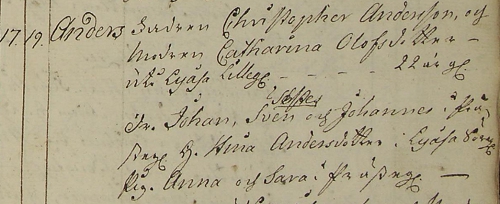 17. 19. Anders Fadren Christopher Andersson, och
Modren Catharina Olofsdotter -
uti Lyåsa Lilleg. - - - 22 år g.
Söhr
Dr. Johan, Sven och Johannes i Prä-
steg. H. Stina Andersdotter i Lyåsa
Pig. Anna och Sara i Präßteg. -